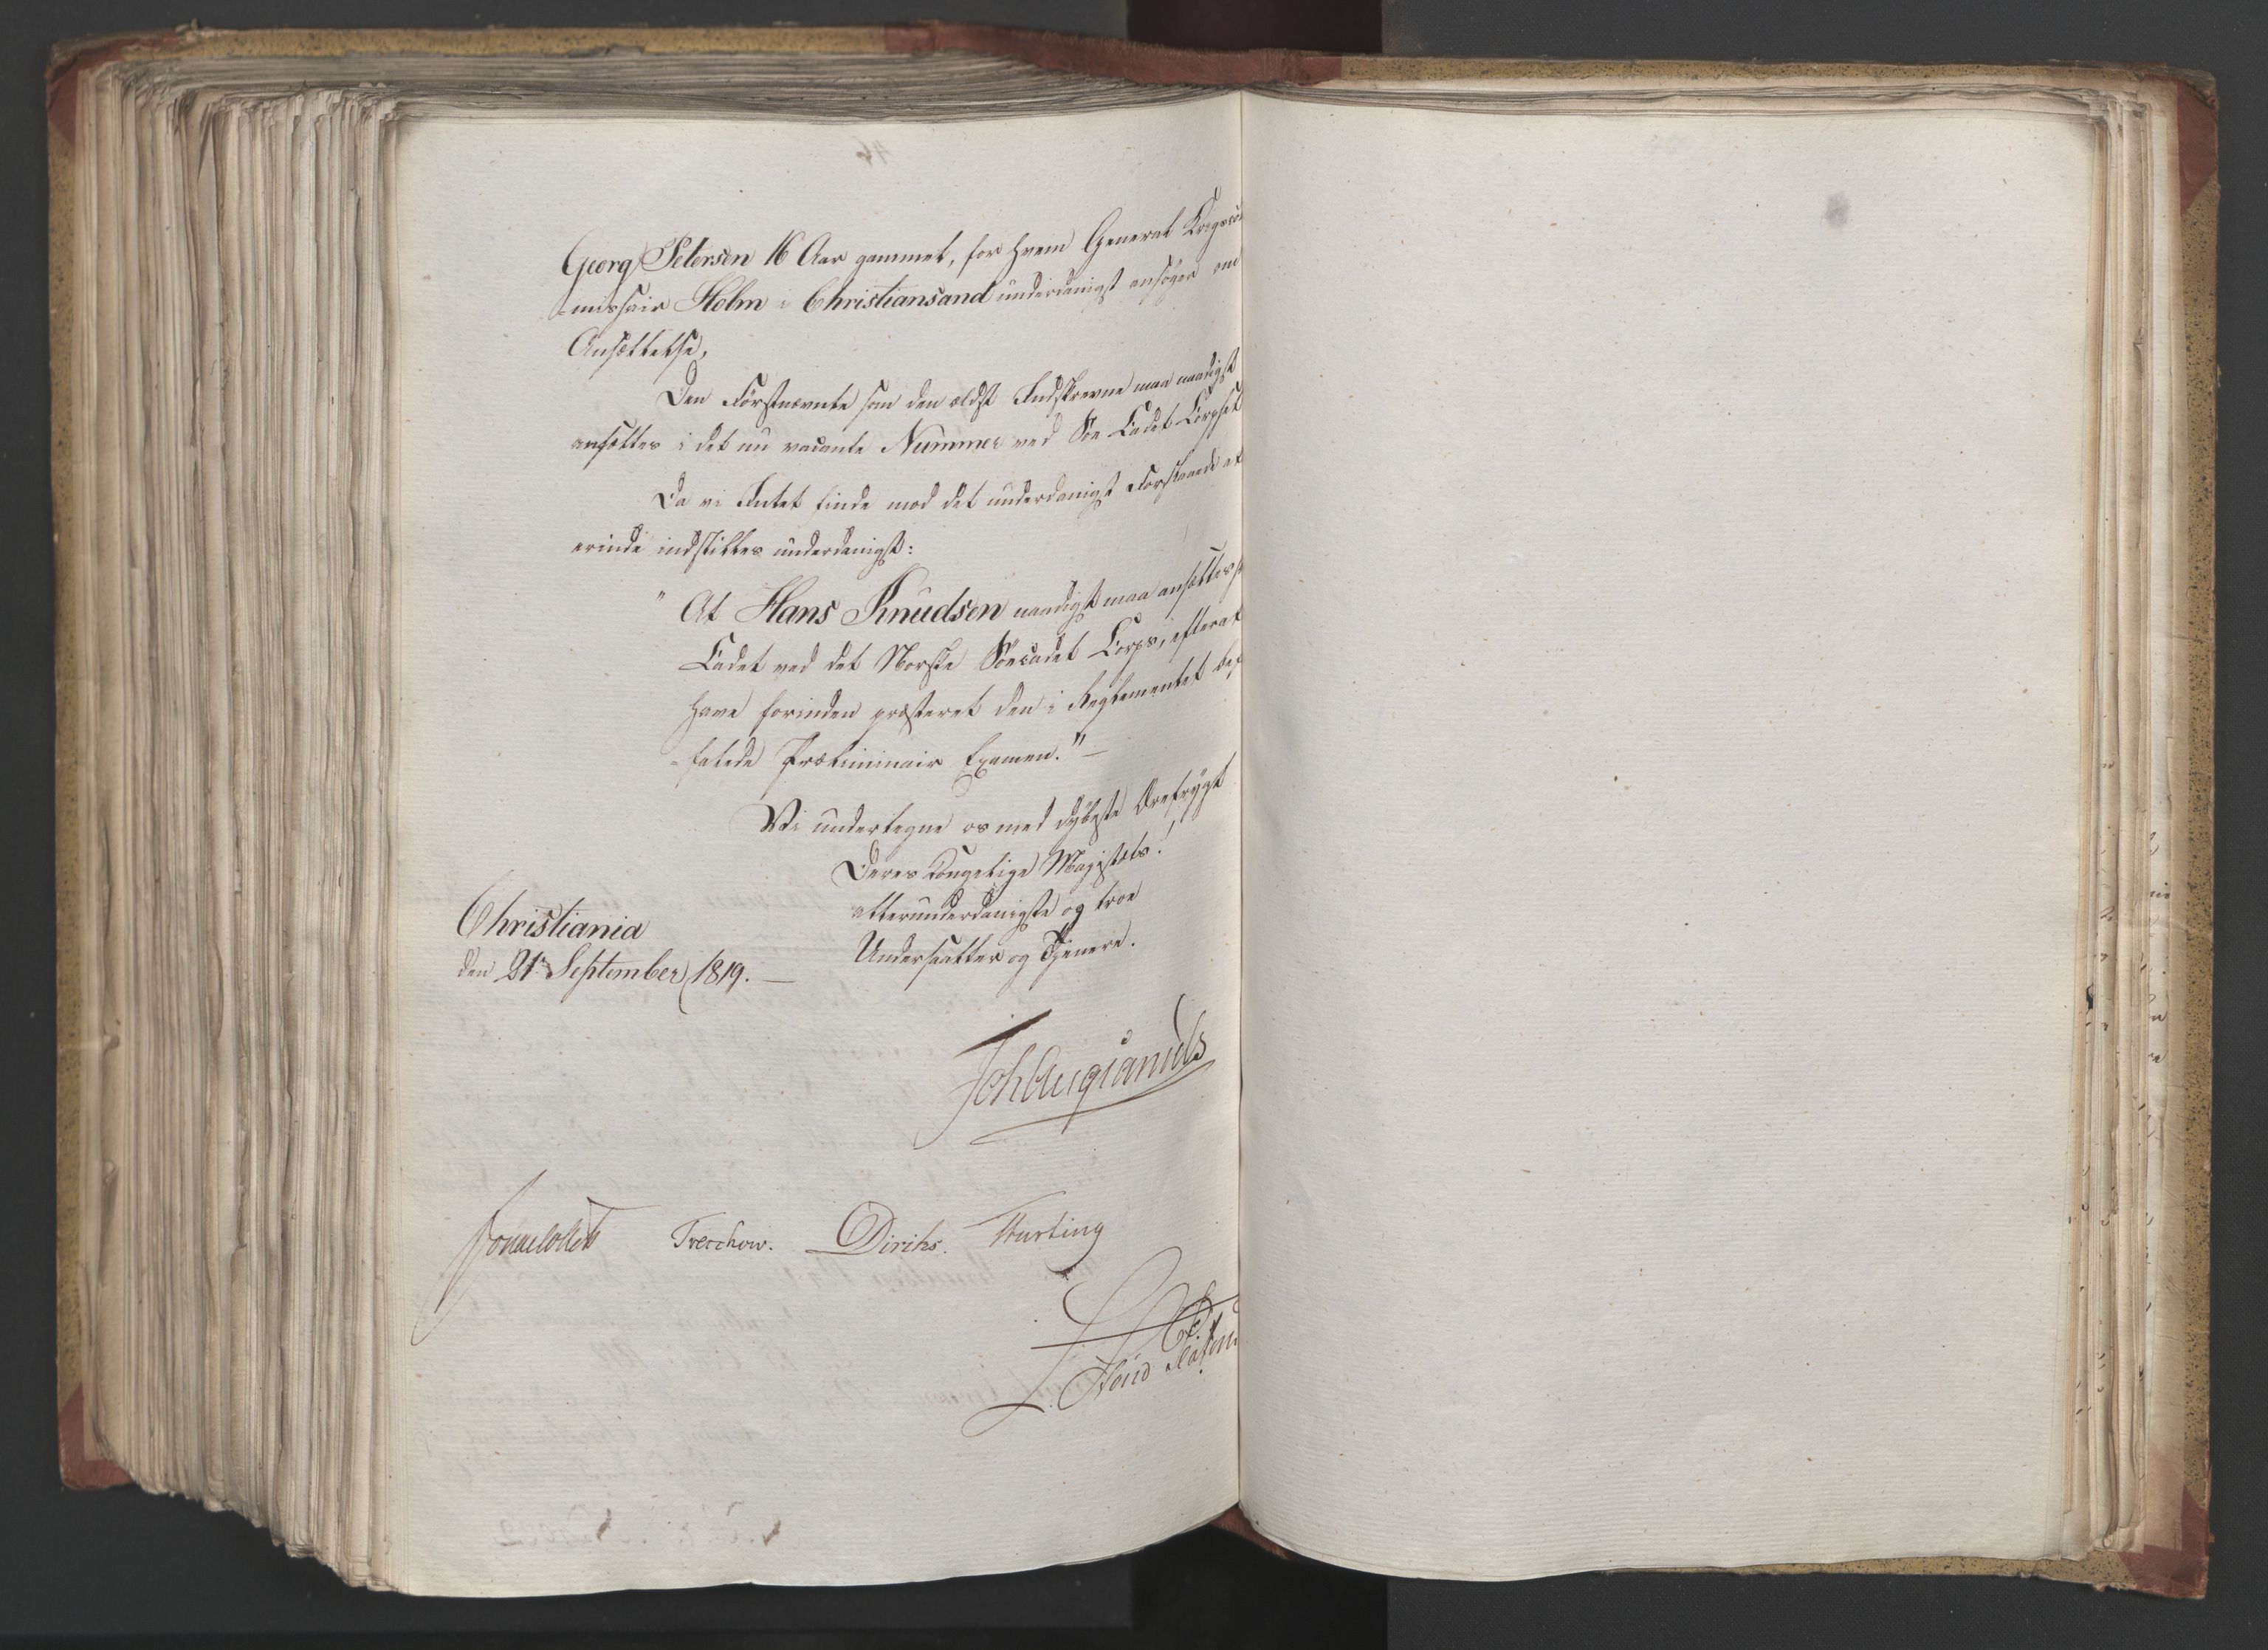 Georg Petersen 16 Aar gammel, for hvem General Krigscom
=missair Holm i Christiansand underdanigst ansøger om
Ansættelse,
Den Førstnævnte som den ældst Indskrevne maa naadigst
ansættes i det nu vacante Nummer ved Søe Cadet Corpset
Da vi Intet finde mod det underdanigst Forslaaede at
erindre indstilles underdanigst:
" At Hans Knudsen naadigst maa ansættes
Cadet ved det Norske Søecadet Corps, efterat
have forinden præsteret den i Reglementet be
=falede Præliminair Examen." —
Vi undertegne os med dybeste Ærefrygt
Deres Kongelige Majestæts!
allerunderdanigste og troe
Undersaatter og Tjenere.
Christiania
den 21 September 1819. —
Sommelfeldt Treschow. Diriks.